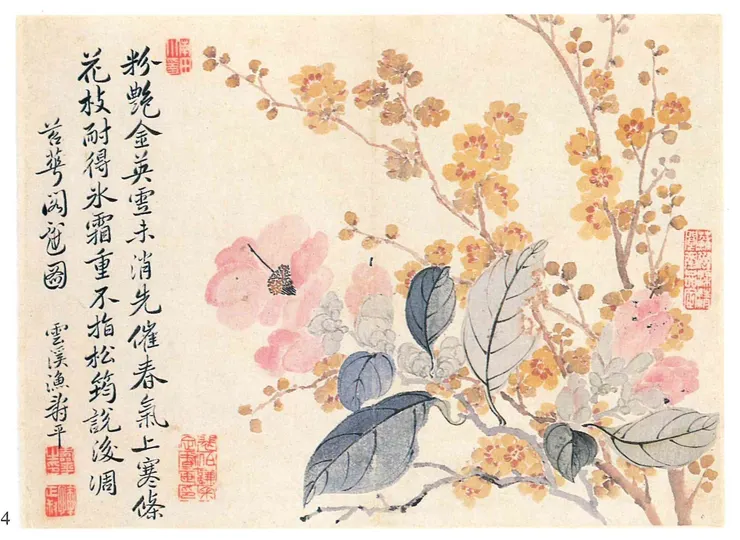 粉艷金英雪未消先催春氣上寒條
花枝耐得氷霜重不指松筠說後凋
苔華閣寫圖 雲溪漁壽平
4